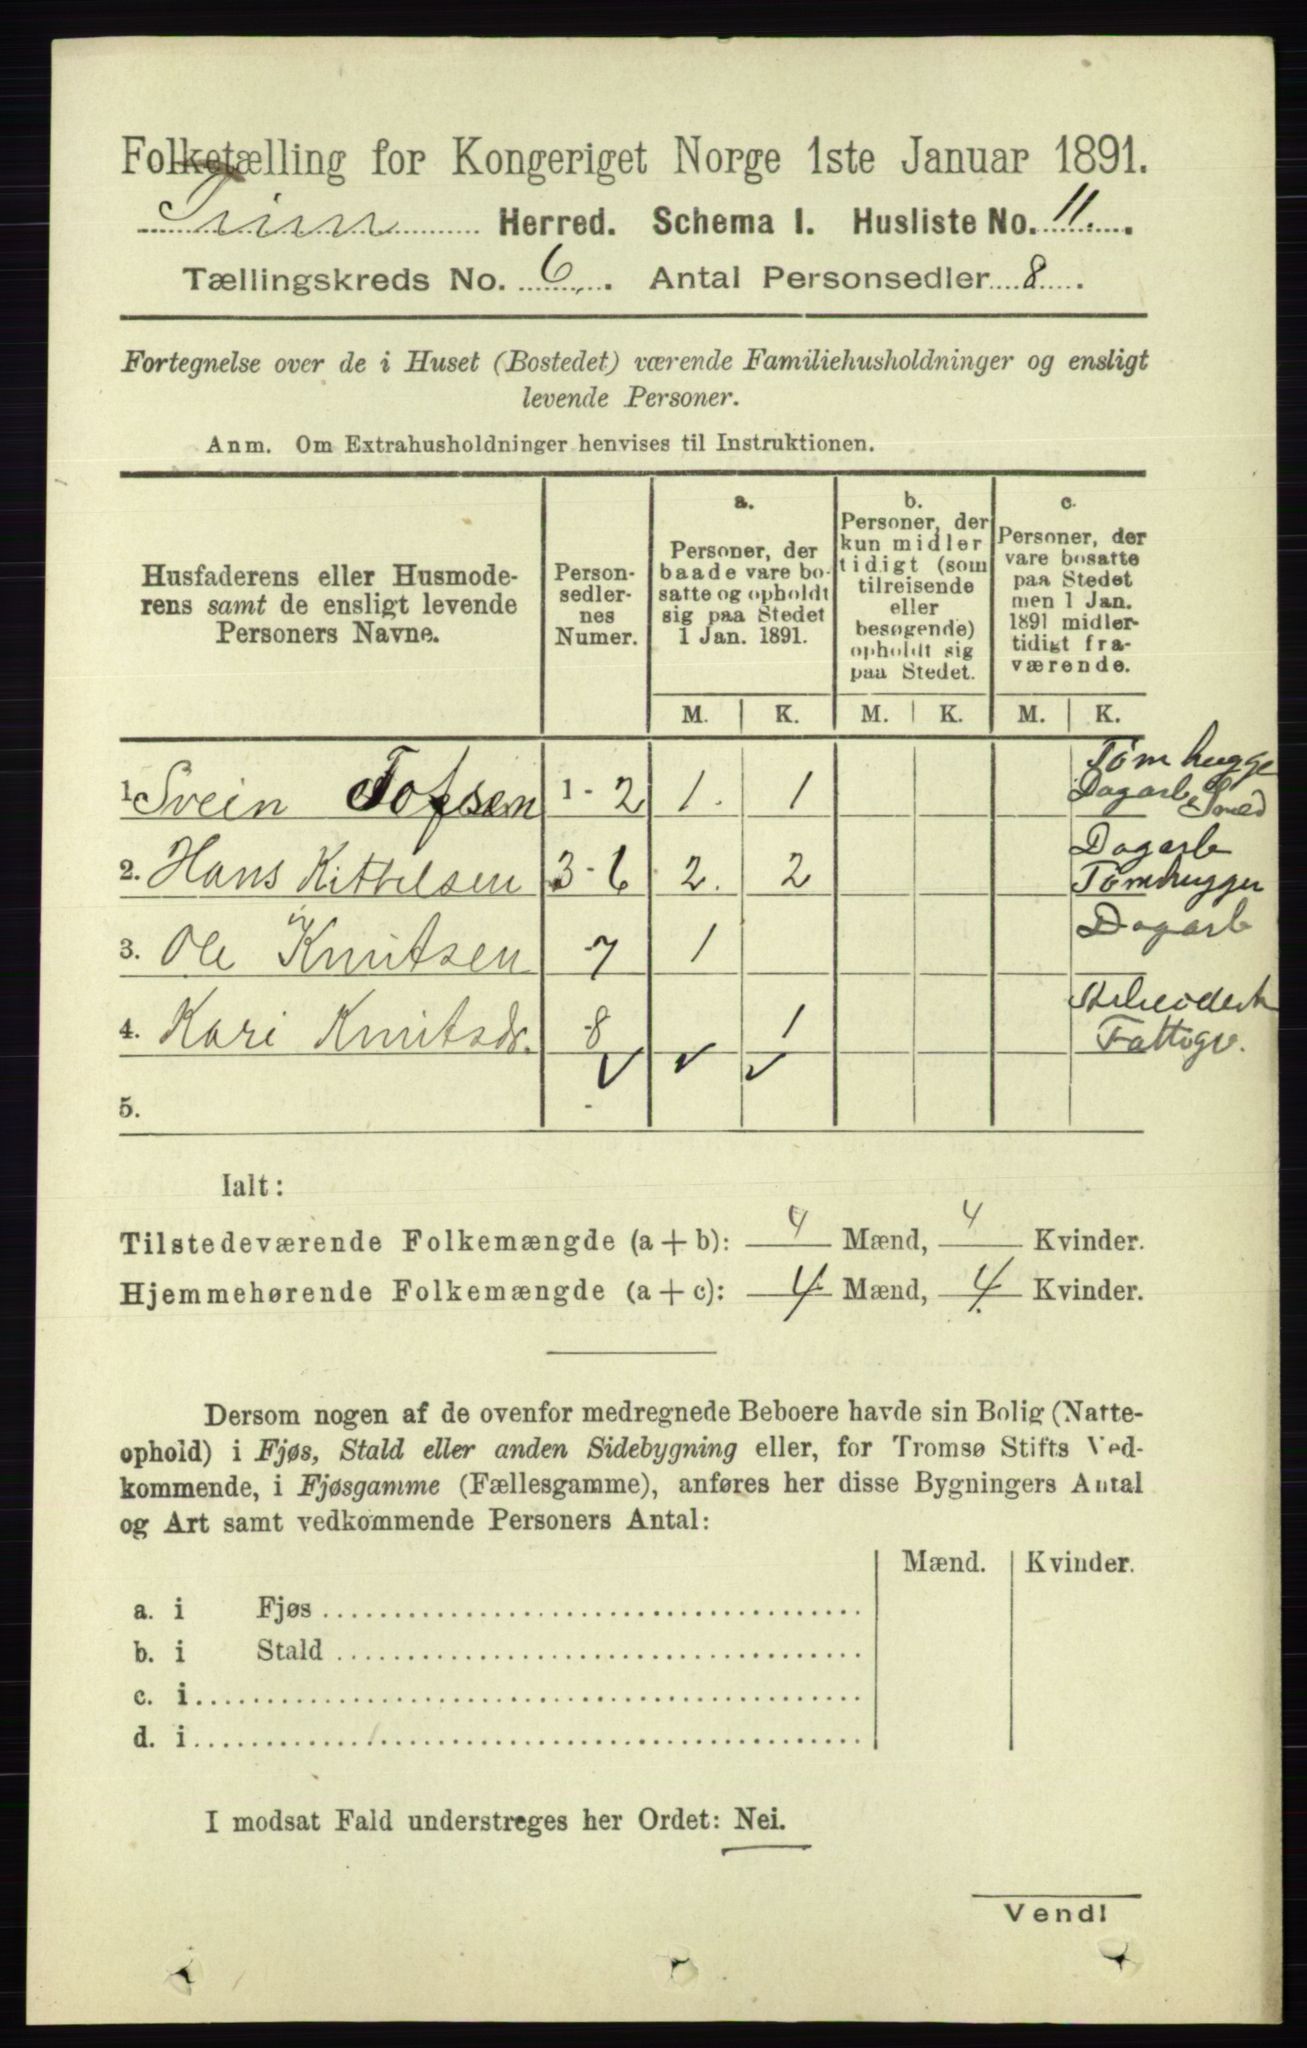 Folketælling for Kongeriget Norge 1ste Januar 1891.
Tinn Herred. Schema I. Husliste No. 11.
Tællingskreds No. 6. Antal Personsedler 8.
Fortegnelse over de i Huset (Bostedet) værende Familiehusholdninger og ensligt
levende Personer.
Anm. Om Extrahusholdninger henvises til Instruktionen.
Husfaderens eller Husmode-
rens samt de ensligt levende
Personers Navne.
Person-
sedler-
nes
Numer.
a.
Personer, der
baade vare bo-
satte og opholdt
sig paa Stedet
1 Jan. 1891.
b.
Personer, der
kun midler
tidigt (som
tilreisende
eller
besøgende)
opholdt sig
paa Stedet.
c.
Personer, der
vare bosatte
paa Stedet
men 1 Jan.
1891 midler-
tidigt fra-
værende.
M. K. M. K. M. K.
Tømhugge
1. Svein Tofsen 1-2 1. 1 Dagarb & Smed
Dagarb
2. Hans Kittelsen 3-6 2. 2 Tømhugger
3. Ole Knutsen -7 1 Dagarb
4. Kari Knutsdr. -8 1
Fattigv.
5. -
Ialt:
Tilstedeværende Folkemængde (a+b): 4 Mænd, 4 Kvinder.
Hjemmehørende Folkemængde (a+c): 4 Mænd, 4 Kvinder.
Dersom nogen af de ovenfor medregnede Beboere havde sin Bolig (Natte-
ophold) i Fjøs, Stald eller anden Sidebygning eller, for Tromsø Stifts Ved-
kommende, i Fjøsgamme (Fællesgamme), anføres her disse Bygningers Antal
og Art samt vedkommende Personers Antal:
Mænd. Kvinder.
a. i Fjøs
b. i Stald
c. i
d. i
I modsat Fald understreges her Ordet: Nei.
Vend!